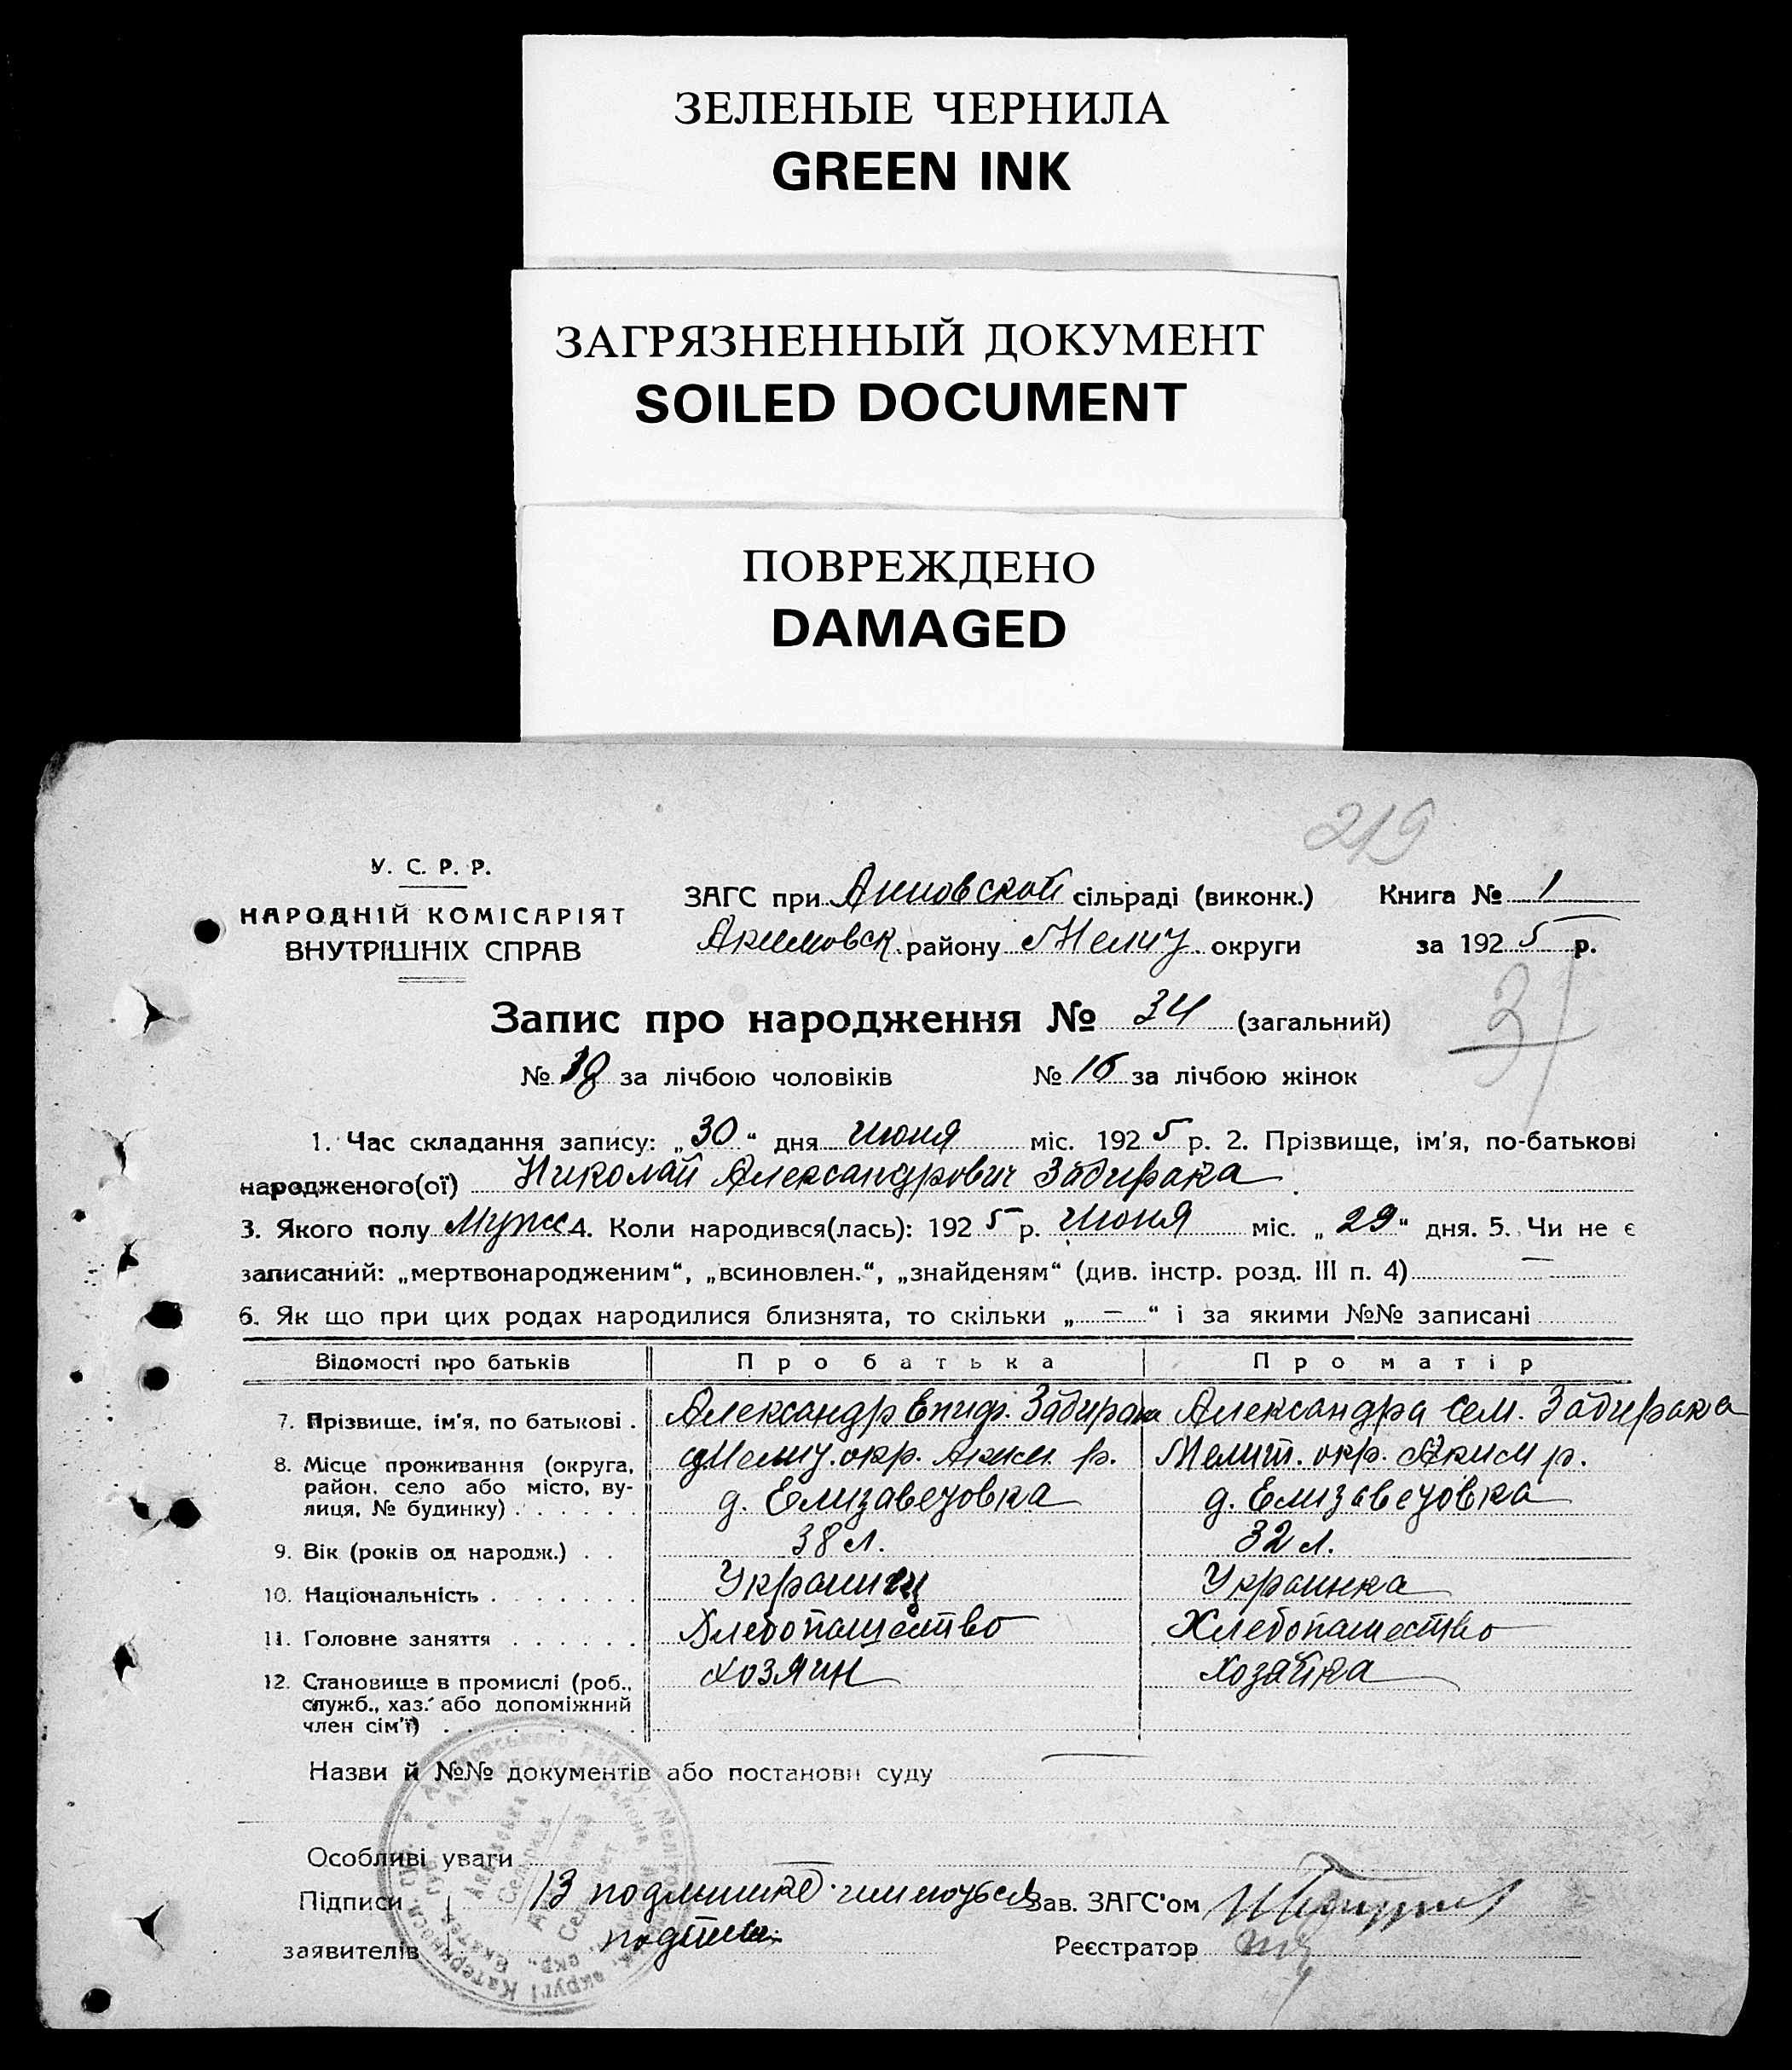 ЗЕЛЕНЫЕ ЧЕРНИЛА
GREEN INK
ЗАГРЯЗНЕННЫЙ ДОКУМЕНТ
SOILED DOCUMENT
ПОВРЕЖДЕНО
DAMAGED
219
У. С. Р. Р.
НАРОДНІЙ КОМІСАРІЯТ
ВНУТРІШНІХ СПРАВ
ЗАГС при Анновской сільраді (виконк.) Книга № 1
Акимовск. району Мелит. округи за 1925 р.
31
Запис про народження № 34 (загальний)
№ 18 за лічбою чоловіків № 16 за лічбою жінок
1. Час складання запису: „30“ дня июня міс. 1925 р. 2. Прізвище, ім'я, по-батькові
народженого(ої) Николай Александрович Забирака
3. Якого полу Мужс 4. Коли народився(лась): 1925 р. Июня міс. „29“ дня. 5. Чи не є
записаний: „мертвонародженим“, „всиновлен.“, „знайденям“ (див. інстр. розд. III п. 4) —
6. Як що при цих родах народилися близнята, то скільки „—“ і за якими №№ записані
Відомості про батьків Про батька Про матір
7. Прізвище, ім'я, по батькові . Александр Епиф. Забирака Александра Сем. Забирака
8. Місце проживання (округа, район, село або місто, вулиця, № будинку) . . . . . . Мелит. окр. Аким. р. Мелит. окр. Аким р.
д. Елизаветовка д. Елизаветовка
9. Вік (років од народж.) . . 38 л. 32 л.
10. Національність . . . . . . . Украинец Украинка
11. Головне заняття . . . . . . Хлебопашество Хлебопашество
12. Становище в промислі (роб., служб., хаз. або допоміжний член сім'ї) . . . . . . . . . Хозяин Хозяйка
Назви й №№ документів або постанови суду —
Особливі уваги —
Підписи В подлинике имеются Зав. ЗАГС'ом
заявителів подписи Реєстратор